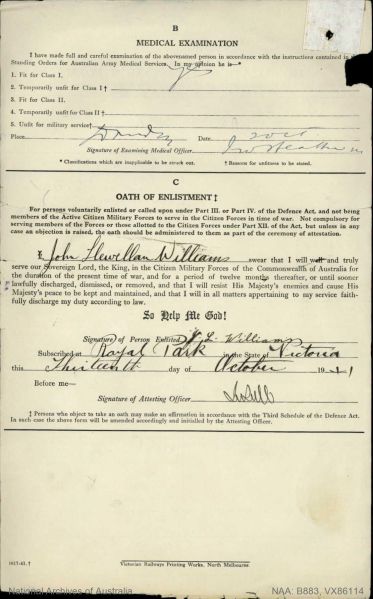 B
MEDICAL EXAMINATION
I have made full and careful examination of the abovenamed person in accordance with the instructions contained in the
Standing Orders for Australian Army Medical Services. In my opinion he is—*
1. Fit for Class I.
2. Temporarily unfit for Class I †
3. Fit for Class II.
4. Temporarily unfit for Class II †
5. Unfit for military service †
Place Date
Signature of Examining Medical Officer
* Classifications which are inapplicable to be struck out. † Reasons for unfitness to be stated.
C
OATH OF ENLISTMENT ‡
For persons voluntarily enlisted or called upon under Part III. or Part IV. of the Defence Act, and not being
members of the Active Citizen Military Forces to serve in the Citizen Forces in time of war. Not compulsory for
serving members of the Forces or those allotted to the Citizen Forces under Part XII. of the Act, but unless in any
case an objection is raised, the oath should be administered to them as part of the ceremony of attestation.
I, John Llewellan Williams swear that I will well and truly
serve our Sovereign Lord, the King, in the Citizen Military Forces of the Commonwealth of Australia for
the duration of the present time of war, and for a period of twelve months thereafter, or until sooner
lawfully discharged, dismissed, or removed, and that I will resist His Majesty's enemies and cause His
Majesty's peace to be kept and maintained, and that I will in all matters appertaining to my service faith-
fully discharge my duty according to law.
So Help Me God!
Signature of Person Enlisted J. L. Williams
Subscribed at Royal Park in the State of Victoria
this Thirteenth day of October 1941
Before me—
Signature of Attesting Officer
‡ Persons who object to take an oath may make an affirmation in accordance with the Third Schedule of the Defence Act.
In such case the above form will be amended accordingly and initialled by the Attesting Officer.
Victorian Railways Printing Works, North Melbourne.
National Archives of Australia NAA: B883, VX86114